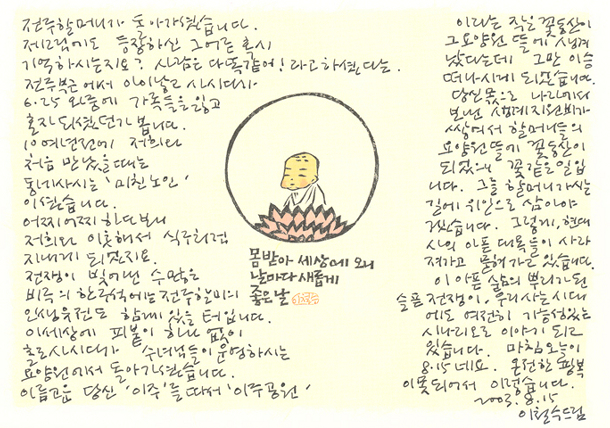 전주할머니가 돌아가셨습니다.
제 그림에도 등장하신 그 어른 혹시
기억하시는지요? 사람은 다 똑같어! 라고 하셨다는.
전주 부근에서 아이 낳고 사시다가
6·25 와중에 가족들을 잃고
혼자 되셨던가 봅니다.
10여년전에 저희와
처음 만났을 때는
동네사시는 '미친노인'
이셨습니다.
어찌어찌 하다보니
저희와 이웃해서 식구처럼
지내게 되었지요.
전쟁이 빚어낸 수많은
비극의 한구석에는 전주할머의
인생유전도 함께 있을 터입니다.
이세상에 피붙이 하나 없이
홀로 사시다가 수녀님들이 운영하시는
요양원에서 돌아가셨습니다.
이름고운 당신 '이주'를 따서 '이주공원'
몸 받아 세상에 오니
날마다 새롭게
좋은날
이라는 작은 꽃동산이
그 요양원 뜰에 생겨
났다는데 그만 이승
떠나시게 되었습니다.
당신 몫으로 나라에서
보낸 생계지원비가
쌓여서 할머니들의
요양원 뜰에 꽃동산이
되었으니 꽃같은 일입
니다. 그를 할머니 가시는
길에 위안으로 삼아야
겠습니다. 그렇게, 현대
사의 아픈 대목들이 사라
져가고 묻혀가고 있습니다.
이 아픈 삶의 뿌리가 된
슬픈 전쟁이, 우리 사는 시대
에도 여전히 가능성있는
시나리오로 이야기 되고
있습니다. 마침 오늘이
8.15네요. 온전한 광복
이 못되어서 이렇습니다.
2003. 8. 15
이철수 드림